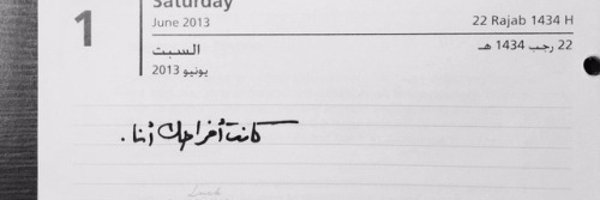 Saturday
1
June 2013
22 Rajab 1434 H
السبت
22 رجب 1434 هـ
يونيو 2013
كانت أفراحك أنا.
Luck